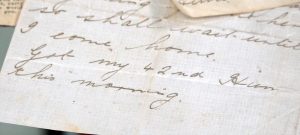 so shall wait until
I come home.
Got my 42nd Hun
this morning.